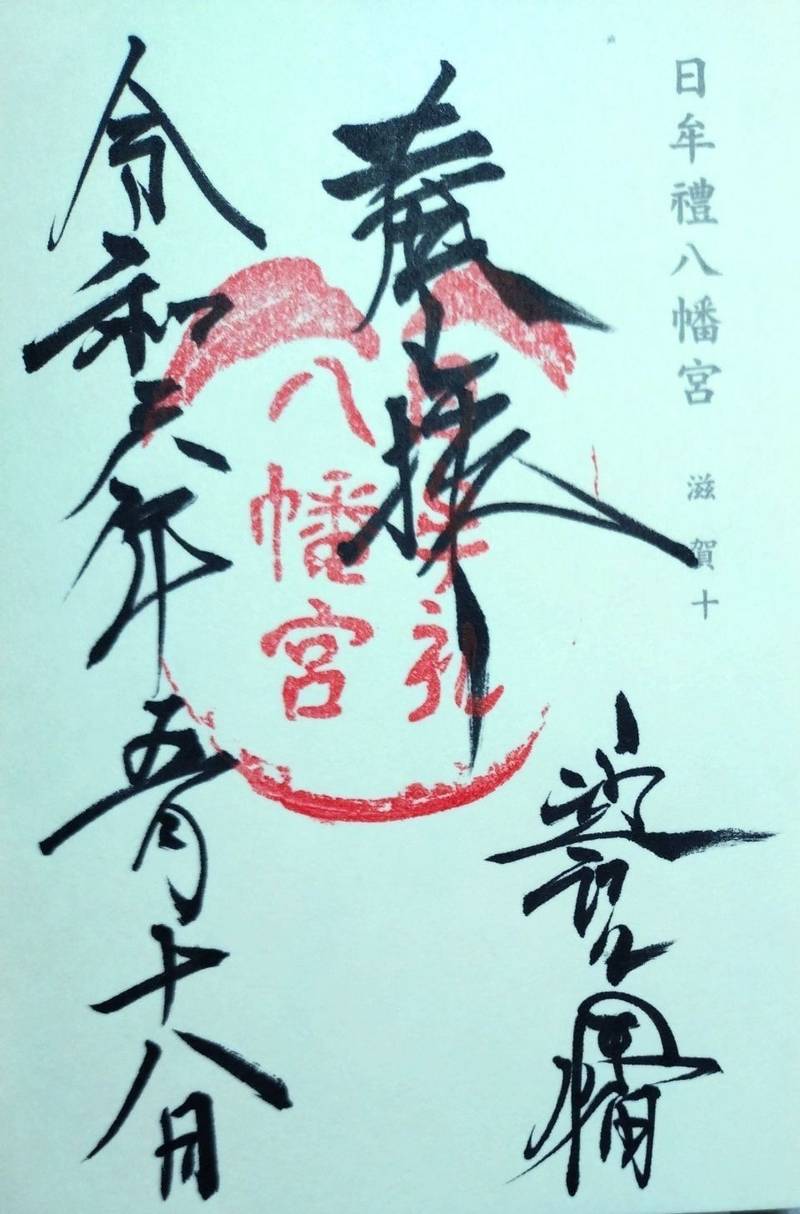 日牟禮八幡宮 滋賀十
奉拝
日牟礼
八幡宮
令和六年五月十八日